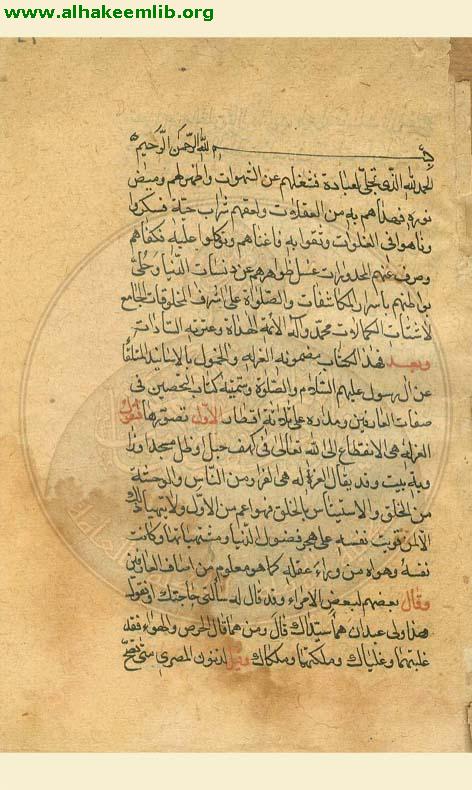 www.alhakeemlib.org
بسم الله الرحمن الرحيم
الحمد لله الذي تجلى لعباده فشغلهم عن الشهوات واظهر لهم وميض
نوره فصاهم به من العقلات والحقهم شراب حبه فسكروا
وتاهوا في الفلوات وتقوا به فاغناهم وتوكلوا عليه فكفاهم
وصرف عنهم المحذورات غسل ظواهرهم عن دنسات الدنيا وحلى
بواطنهم باسرار المكاشفات والصلواة على اشرف المخلوقات الجامع
لاشتات الكمالات محمد وآله الأئمة الهداة وعترته السادات
وبعد فهذا الكتاب مضمونه العزلة والخمول بالاسانيد المتلقاة
عن آل الرسول عليهم السلام والصلوة وسميته كتاب التحصين في
صفات العارفين ومداره على ثلاثة اقطاب الاول في تصورها فنقول
العزلة هي الانقطاع الى الله تعالى في كهف جبل او ظل مسجد او
زاوية بيت وقد يقال العزلة هي الفرار من الناس والوحشة
من الخلق والاستيناس بالحق فهو اعم من الاول ولا يتهيأ ذلك
الا لمن قويت نفسه على هجر فضول الدنيا ومشتهياتها وكانت
نفسه وهواه من وراء عقله كما هو معلوم من اساف العارفين
وقال بعضهم لبعض الامراء وقد قال له سألتني حاجتك او تقول
هذا ولي عبدان هما سيداك قال ومن هما قال الحرص والهواء فقد
غلبتهما وغلباك وملكتهما وملكاك وقيل لذنون المصري متى تصح